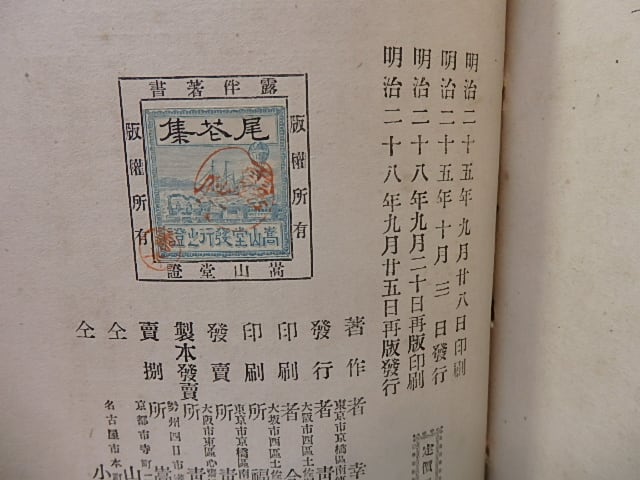 明治二十五年九月廿八日印刷
明治二十五年十月三日發行
明治二十八年九月二十日再版印刷
明治二十八年九月廿五日再版發行
露伴著書
版權所有
版權所有
嵩山堂證
尾花集
嵩山堂發行之證
定價
著作者 幸
東京市京橋區南
發行者 青
大阪市西區土佐
印刷者
大坂市西區土佐
印刷所 福
東京市京橋區南
發賣所 青
大阪市東區心齋
製本發賣所
勢州四日市
賣捌所 嵩山
京都市寺町
仝
名古屋市本町
仝 小